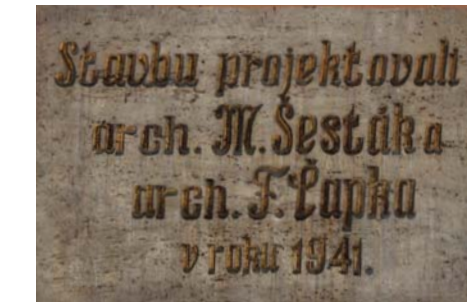 Stavbu projektovali
arch. M. Šesták a
arch. F. Čapka
v roku 1941.